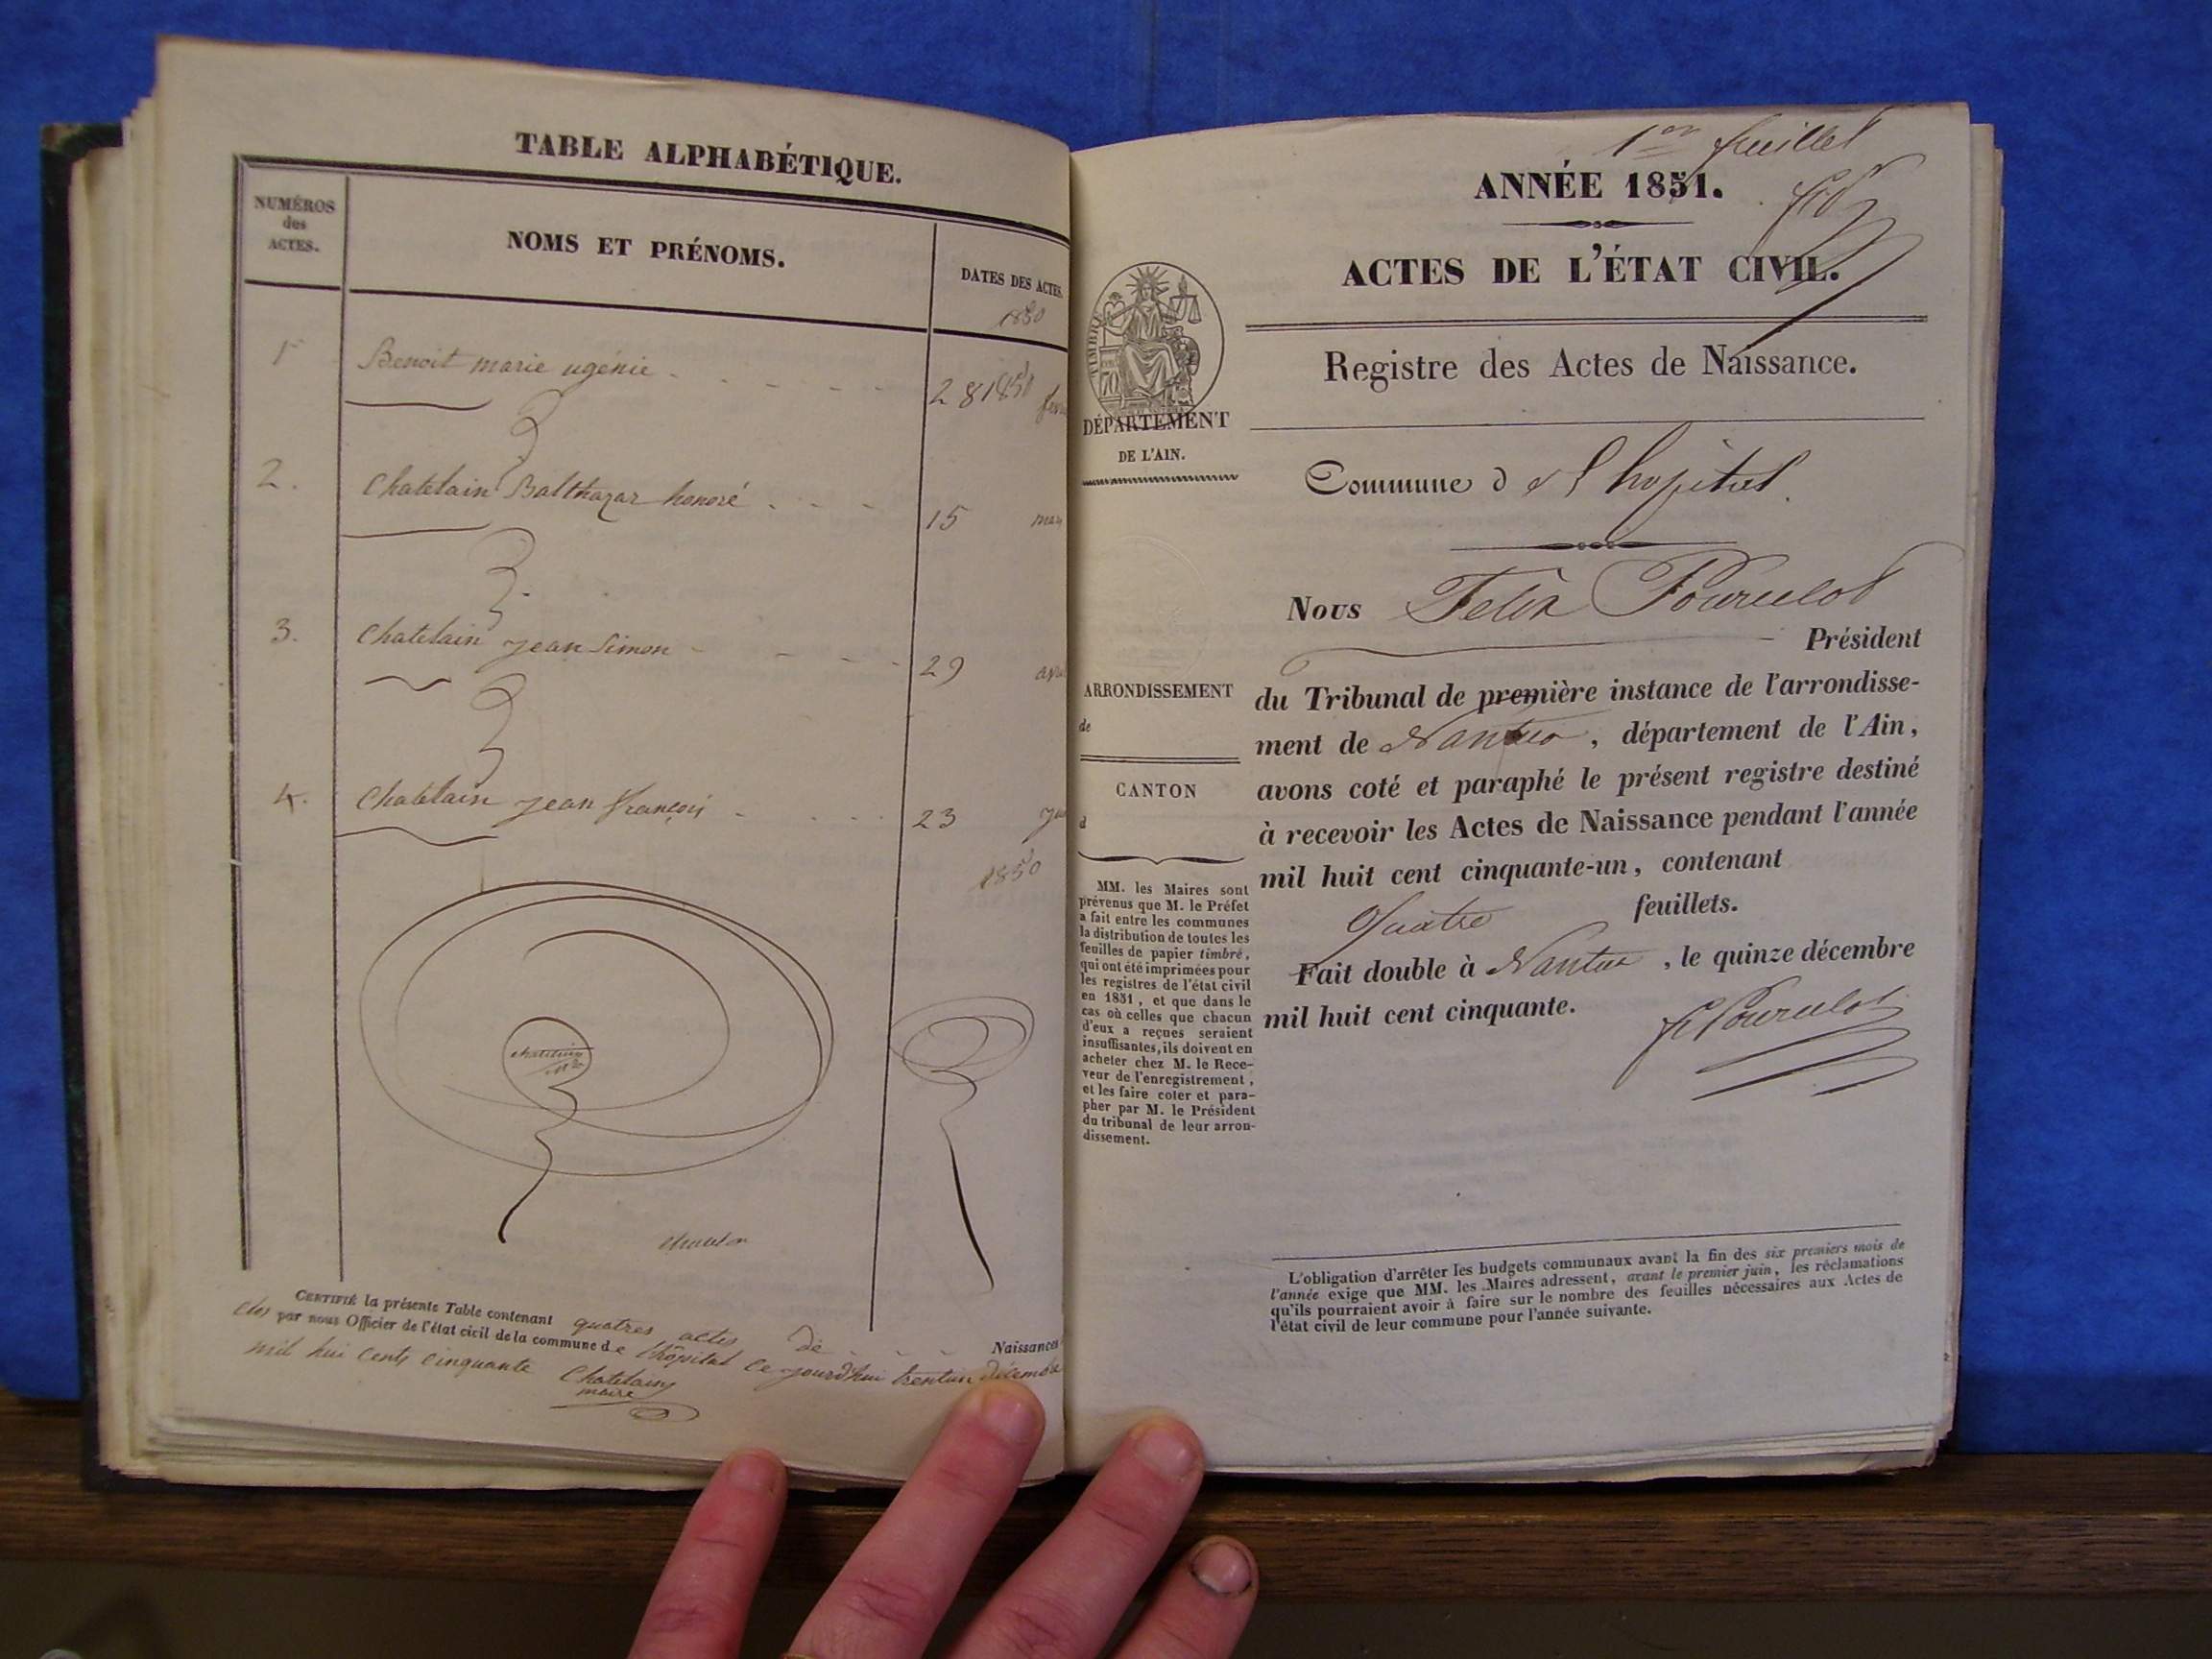 TABLE ALPHABÉTIQUE.
NUMÉROS
des
ACTES.
NOMS ET PRÉNOMS.
DATES DES ACTES.
1850
1 Benoit marie ugénie 28 1850
2. Chatelain Balthazar honoré 15 mars
3. Chatelain jean Simon 29
4. Chatelain jean françois 23
1850
CERTIFIÉ la présente Table contenant quatres actes de Naissances
par nous Officier de l'état civil de la commune de l'hôpital ce jourdhui trentun décembre
mil hui cents cinquante
Chatelain
maire
1er feuillet
ANNÉE 1851.
ACTES DE L'ÉTAT CIVIL.
Registre des Actes de Naissance.
TIMBRE
70
DÉPARTEMENT
DE L'AIN.
Commune d e l hopital.
Nous Felix Pourcelot
Président
du Tribunal de première instance de l'arrondisse-
ment de Nantua, département de l'Ain,
avons coté et paraphé le présent registre destiné
à recevoir les Actes de Naissance pendant l'année
mil huit cent cinquante-un, contenant
Quatre feuillets.
Fait double à Nantua, le quinze décembre
mil huit cent cinquante.
F Pourcelot
ARRONDISSEMENT
de
CANTON
d
MM. les Maires sont
prévenus que M. le Préfet
a fait entre les communes
la distribution de toutes les
feuilles de papier timbré,
qui ont été imprimées pour
les registres de l'état civil
en 1851, et que dans le
cas où celles que chacun
d'eux a reçues seraient
insuffisantes, ils doivent en
acheter chez M. le Rece-
veur de l'enregistrement,
et les faire coter et para-
pher par M. le Président
du tribunal de leur arron-
dissement.
L'obligation d'arrêter les budgets communaux avant la fin des six premiers mois de
l'année exige que MM. les Maires adressent, avant le premier juin, les réclamations
qu'ils pourraient avoir à faire sur le nombre des feuilles nécessaires aux Actes de
l'état civil de leur commune pour l'année suivante.